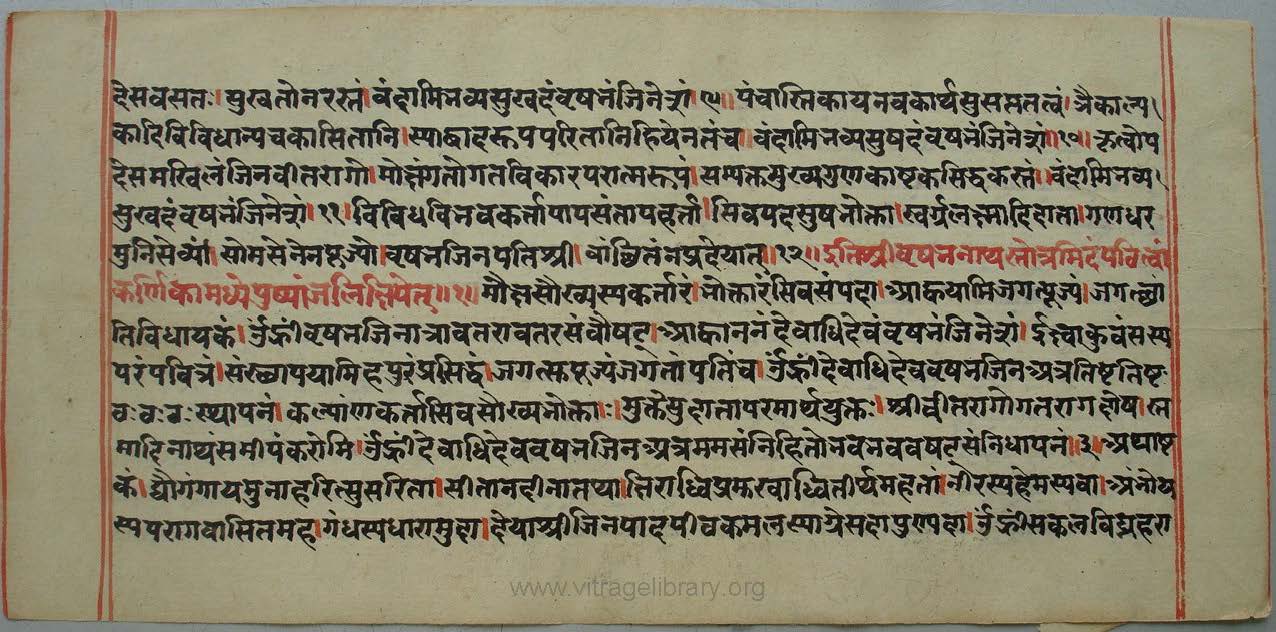 देसवसतः। सुखतोनररत्नं। वंदामिभव्यसुखदंवृषभंजिनेंद्रां।९॥ पंचास्तिकायनवकार्थसुसप्ततत्वं। त्रैकाल्प
कादिविविधान्पवकासितानि। स्पाद्वादरूपपरितानिहियेनतंच। वंदामिभव्यसुषदंवृषभंजिनेंद्रां।१०। कृत्वोप
देसमखिलंजिनवीतरागो। मोक्षंगतोगतविकारपरात्मरूपं। सम्यक्तमुख्यगुणकाष्टकसिद्धकस्तं। वंदामिभव्य
सुखदंवृषभंजिनेंद्रां।११। विविधविभवकर्ता पापसंतापहर्ता। सिवपदसुषभोक्ता। स्वर्गलक्ष्मादिदाता। गणधर
मुनिसेव्यां। सोमसेनेनपूज्यो। वृषभजिनपतिश्री। वांछितंनप्रदेयात्।१२॥ इतिश्रीवृषभनाथस्तोत्रमिदंपवित्वां
कर्णिकामध्येपुष्पांजलिंक्षिपेत्॥१॥ मौक्षसौख्यस्यकर्तारं। भोक्तारंसिवसंपदा। आह्वयामिजगत्पूज्यं। जगत्छां
तिविधायकं। ॐह्रींवृषभजिनात्रावतरावतरसंवौषट्। आह्वाननं देवाधिदेवंवृषभंजिनेंद्रां। इक्ष्वाकुवंसस्प
परंपवित्रं। संस्थापयामिहपुरंप्रसिद्धं। जगत्सुपूज्यंजगतांपतिंच। ॐह्रींदेवाधिदेववृषभजिनअत्रतिष्टतिष्ट
ठः ठः ठः स्थापनं। कल्पांणकर्तासिवसौख्यभोक्ता। मुक्तेसुदातापरमार्थयुक्तः। श्रीवीतरागोगतरागदोष। रत्न
मादिनाथंसमीपंकरोमि। ॐह्रींदेवाधिदेववृषभजिनअत्रममसंनिहितोभवभववषट्संनिधापनं।३। अथाष्ट
कं। द्यौगंगायमुनाहरित्सुसरिता। सीतानदीनातथा। क्षिराध्विप्रमुखाध्वितीर्थमहतां। नीरस्पहेमस्यवा। अंभोध
स्पपरागवासितमह। गंधस्पधारामुदा। देयाश्रीजिनपादपीठकमलस्पाग्रेसदापुण्पदा। ॐह्रींसकलविघ्नहरा
www.vitragelibrary.org